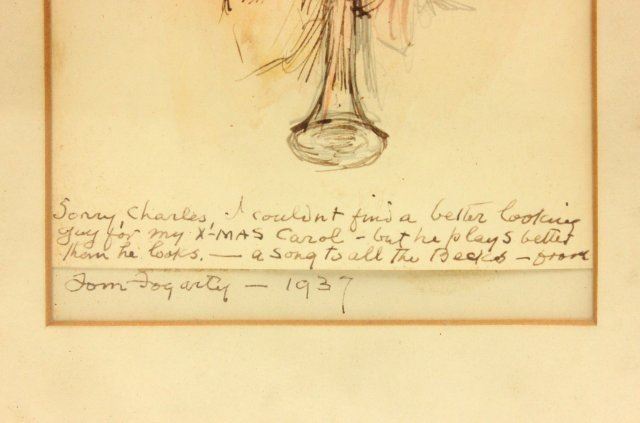 Sorry, Charles, I couldnt find a better looking
guy for my X-MAS Carol - but he plays better
than he looks. — a song to all the Becks - from
Tom Fogarty — 1937